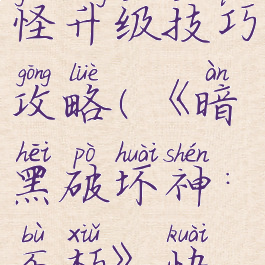 怪升级技巧
gōng lüè àn
攻略(《暗
hēi pò huài shén
黑破坏神:
bù xiǔ kuài